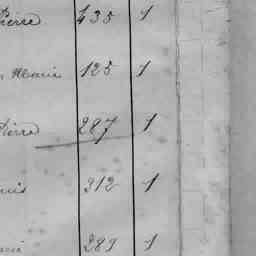 Pierre 435 1
Marie 125 1
Pierre 287 1
312 1
289 1